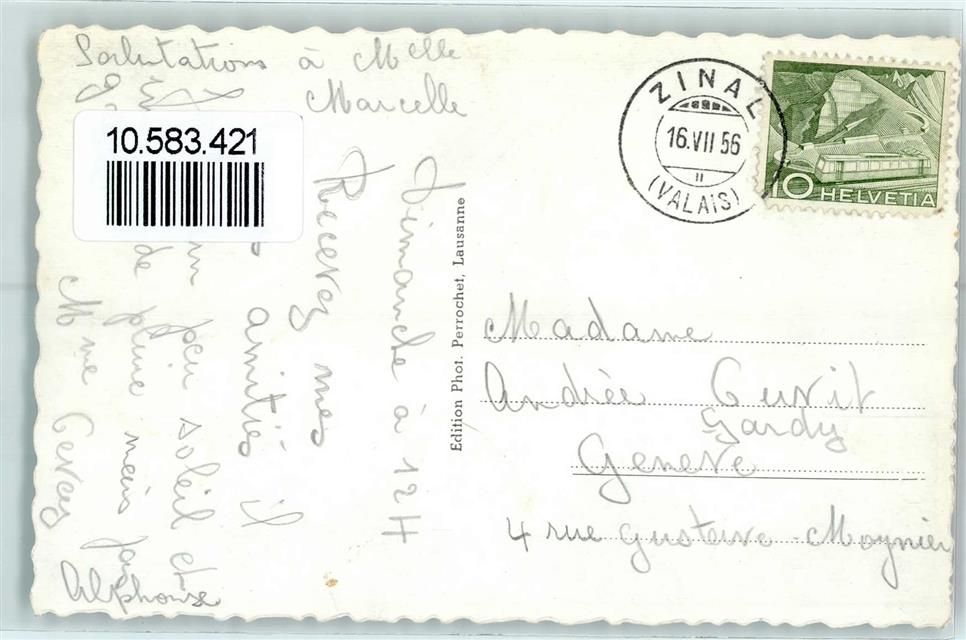 Salutations à Melle
Marcelle
10.583.421
Dimanche à 12 H
Recevez mes
amitiés il
un peu soleil et
de pluie mais
Mme
Alphonse
Edition Phot. Perrochet, Lausanne
ZINAL
16.VII 56
II
(VALAIS)
10 HELVETIA
Madame
Andrée
Gardy
Genève
4 rue Gustave Moynier